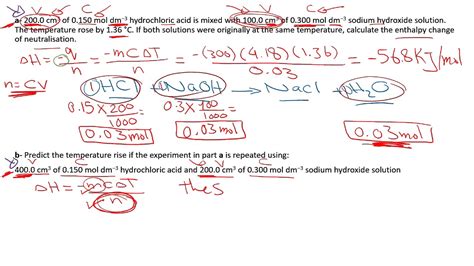 V C V C
a- 200.0 cm³ of 0.150 mol dm⁻³ hydrochloric acid is mixed with 100.0 cm³ of 0.300 mol dm⁻³ sodium hydroxide solution.
The temperature rise by 1.36 °C. If both solutions were originally at the same temperature, calculate the enthalpy change
of neutralisation.
ΔH = -q/n = -mCΔT/n = -(300)(4.18)(1.36)/0.03 = -56.8 KJ/mol
n=CV 1HCl + 1NaOH → NaCl + 1H₂O
0.15 × 200/1000 0.3 × 100/1000
0.03mol 0.03mol 0.03mol
b- Predict the temperature rise if the experiment in part a is repeated using:
V C V C
400.0 cm³ of 0.150 mol dm⁻³ hydrochloric acid and 200.0 cm³ of 0.300 mol dm⁻³ sodium hydroxide solution
ΔH = -mCΔT/n thes